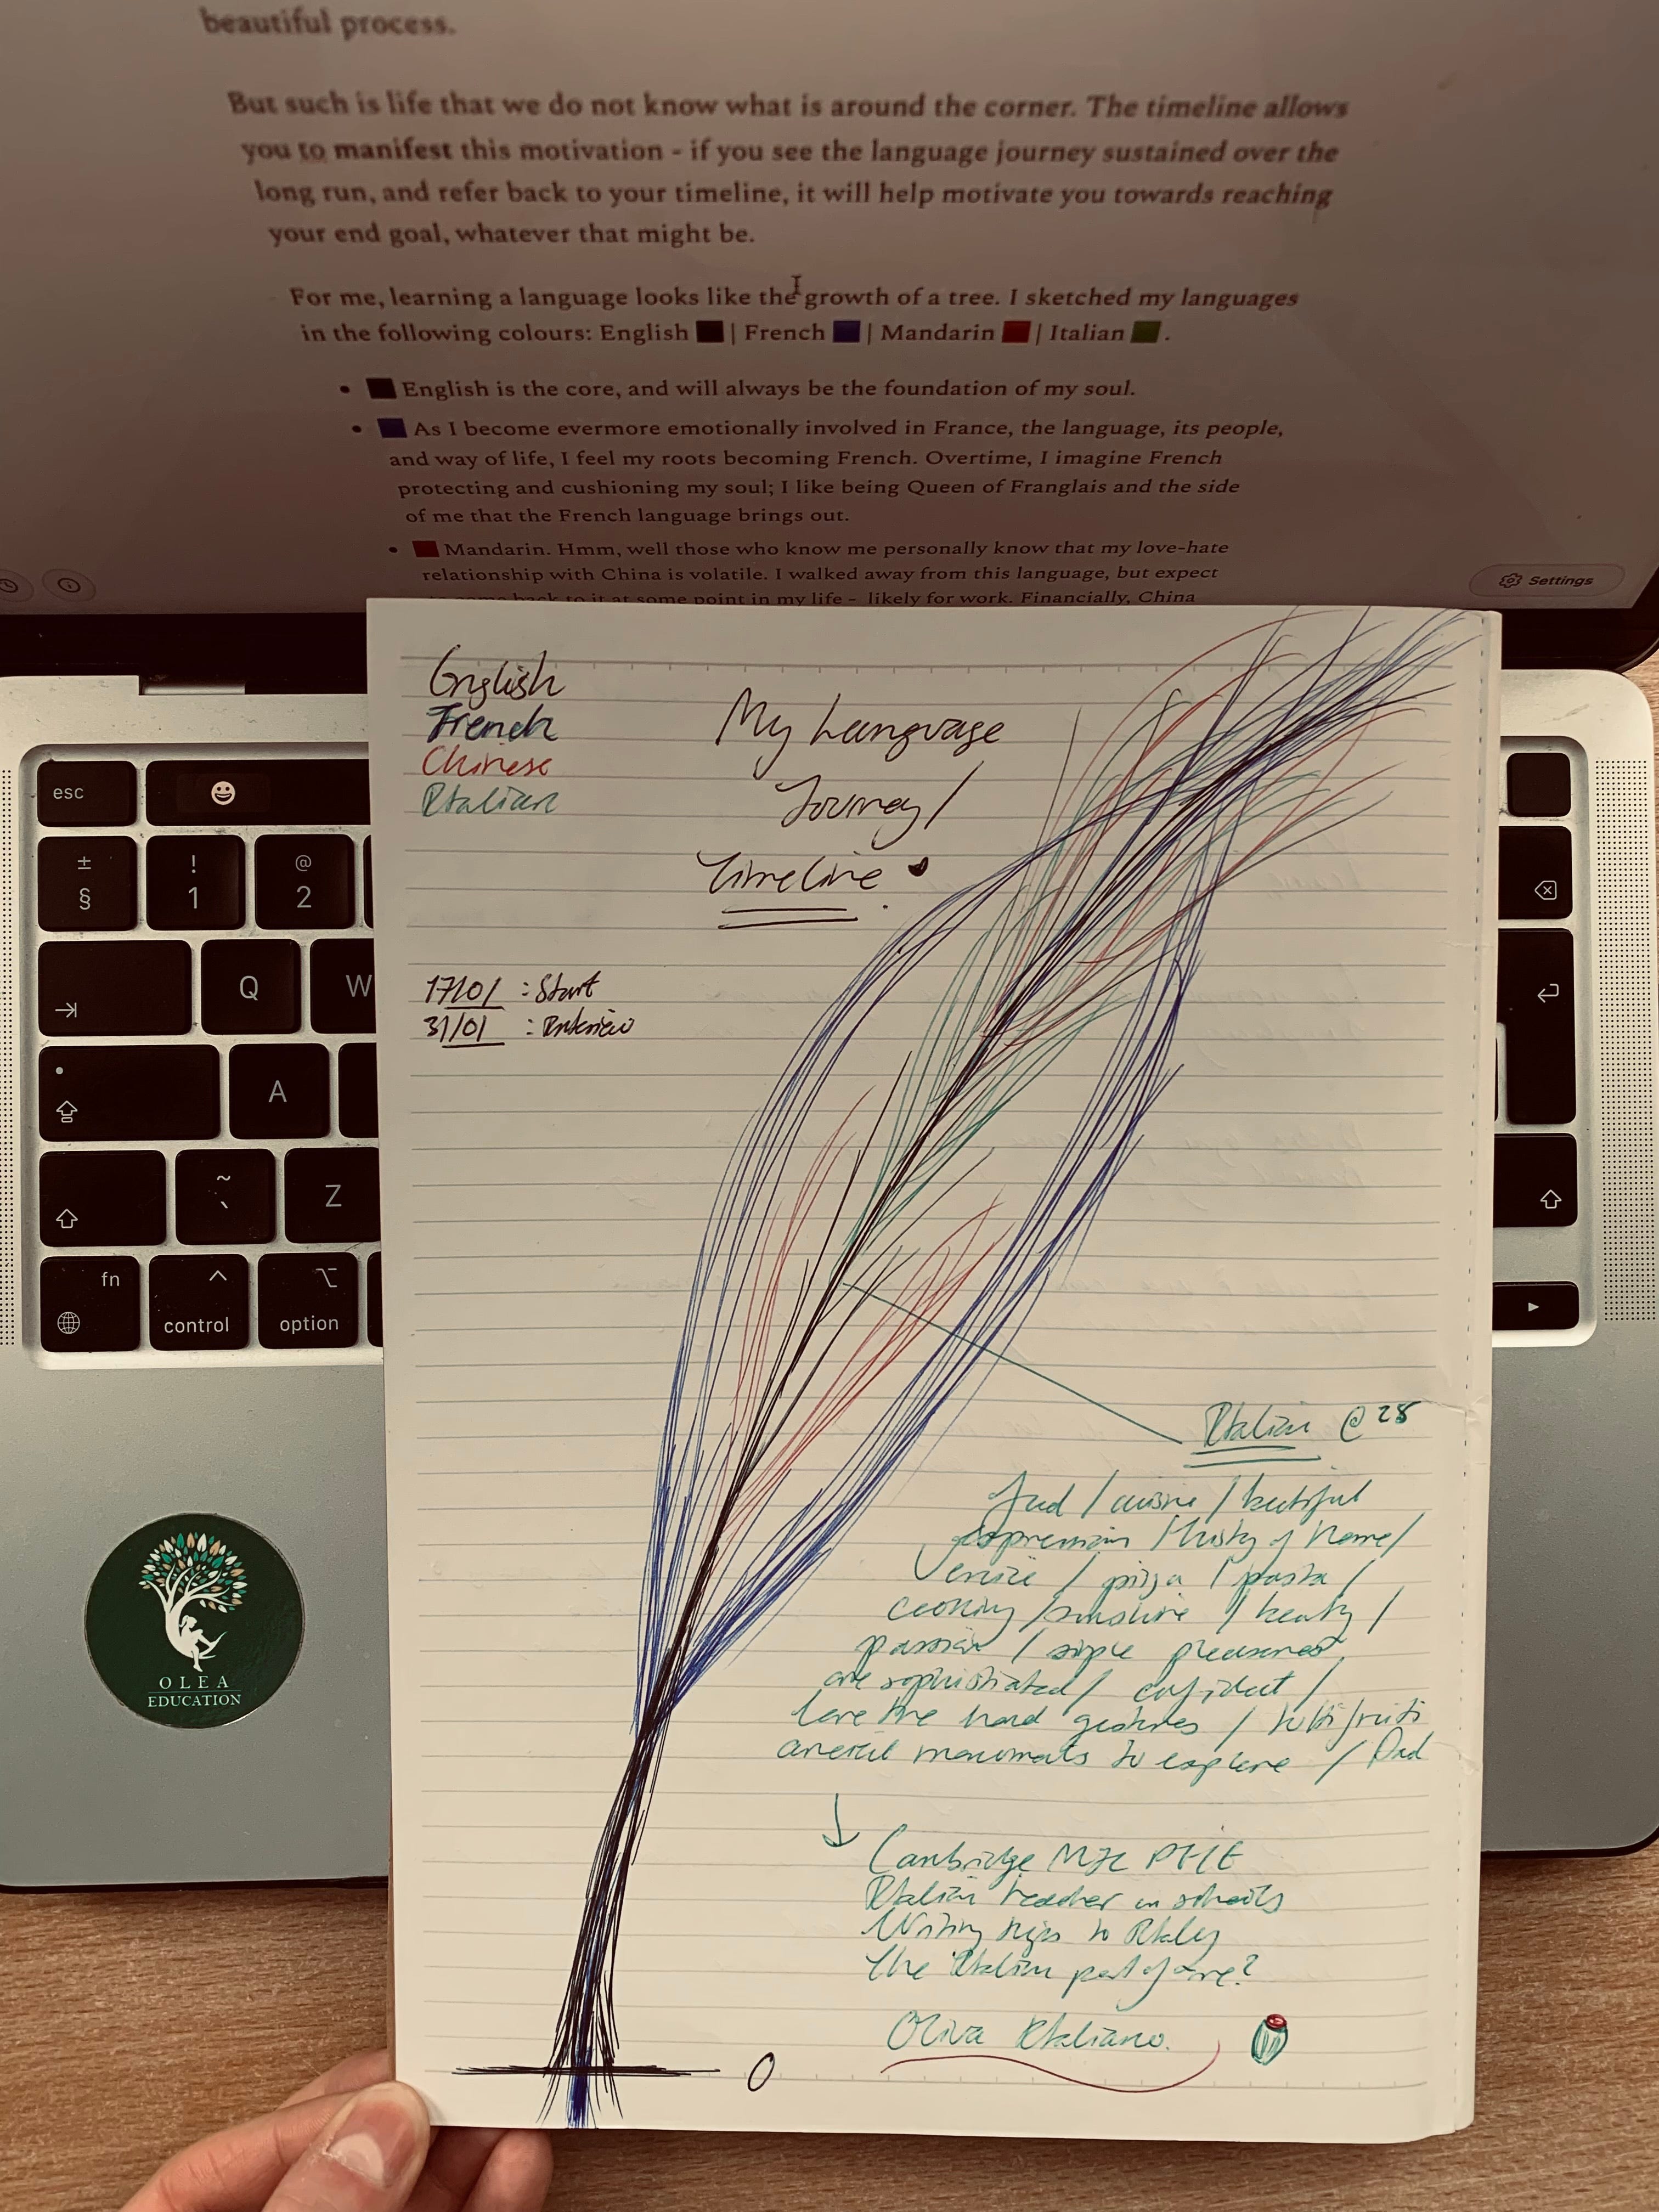 beautiful process.
But such is life that we do not know what is around the corner. The timeline allows
you to manifest this motivation - if you see the language journey sustained over the
long run, and refer back to your timeline, it will help motivate you towards reaching
your end goal, whatever that might be.
For me, learning a language looks like the growth of a tree. I sketched my languages
in the following colours: English | French | Mandarin | Italian .
• English is the core, and will always be the foundation of my soul.
• As I become evermore emotionally involved in France, the language, its people,
and way of life, I feel my roots becoming French. Overtime, I imagine French
protecting and cushioning my soul; I like being Queen of Franglais and the side
of me that the French language brings out.
• Mandarin. Hmm, well those who know me personally know that my love-hate
relationship with China is volatile. I walked away from this language, but expect
to come back to it at some point in my life - likely for work. Financially, China
Settings
English
French
Chinese
Italian
My Language
Journey /
Timeline
17/01 : Start
31/01 : Interview
Italian @ 28
food / cuisine / beautiful
expression / history of Rome /
Venice / pizza / pasta /
cooking / sunshine / beauty /
passion / simple pleasures
are sophisticated / confident /
love the hand gestures / tutti frutti
ancient monuments to explore / Dad
Cambridge MFL PGCE
Italian teacher in schools
Writing trips to Italy
The Italian part of me?
Oliva Italiano.
0
esc
± §
! 1
@ 2
Q
W
A
~ `
Z
fn
control
option
OLEA
EDUCATION